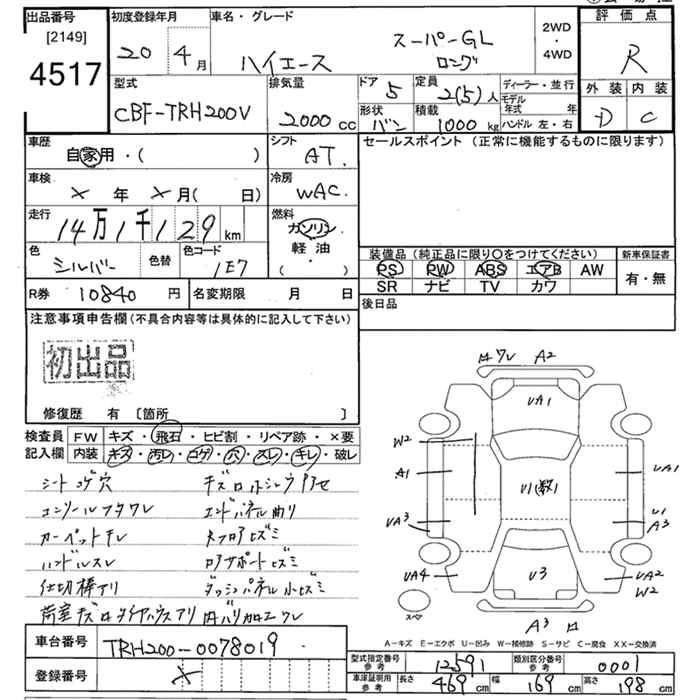 出品番号 [2149] 4517
初度登録年月 20 4月
車名・グレード ハイエース スーパーGL ロング
2WD・4WD
評価点 R
外装 内装
D C
型式 CBF-TRH200V
排気量 2000 cc
ドア 5
形状 バン
定員 2(5)人
積載 1000 kg
ディーラー・並行
モデル年式 年
ハンドル 左・右
車歴 自家用・( )
シフト AT.
セールスポイント (正常に機能するものに限ります)
車検 × 年 ×月( 日)
冷房 WAC.
走行 14万1千129 km
燃料 ガソリン
軽油
・( )
色 シルバー 色替 色コード 1E7
装備品 (純正品に限り〇をつけてください)
PS PW ABS エアB AW
SR ナビ TV カワ
新車保証書
有・無
R券 10840 円 名変期限 月 日
後日品
注意事項申告欄 (不具合内容等は具体的に記入して下さい)
初出品
修復歴 有 〔箇所 〕
検査員記入欄
FW キズ・飛石・ヒビ割・リペア跡・×要
内装 キズ・汚レ・コゲ・穴・スレ・キレ・破レ
シートコゲ穴
コンソールフタワレ エンドパネル曲り
カーペットキレ
ハンドルスレ
仕切棒アリ
車台番号 TRH200-0078019
登録番号 ×
ワレ A2
UA1
W2
A1 U1(数) UA1
UA3 U1
A3
UA4 U3 UA2
W2
スペア
A3
A-キズ E-エクボ U-凹み W-補修跡 S-サビ C-腐食 XX-交換済
型式指定番号 参考 12591 類別区分番号 参考 0001
車庫証明用 参考 長さ 469 cm 幅 169 cm 高さ 198 cm